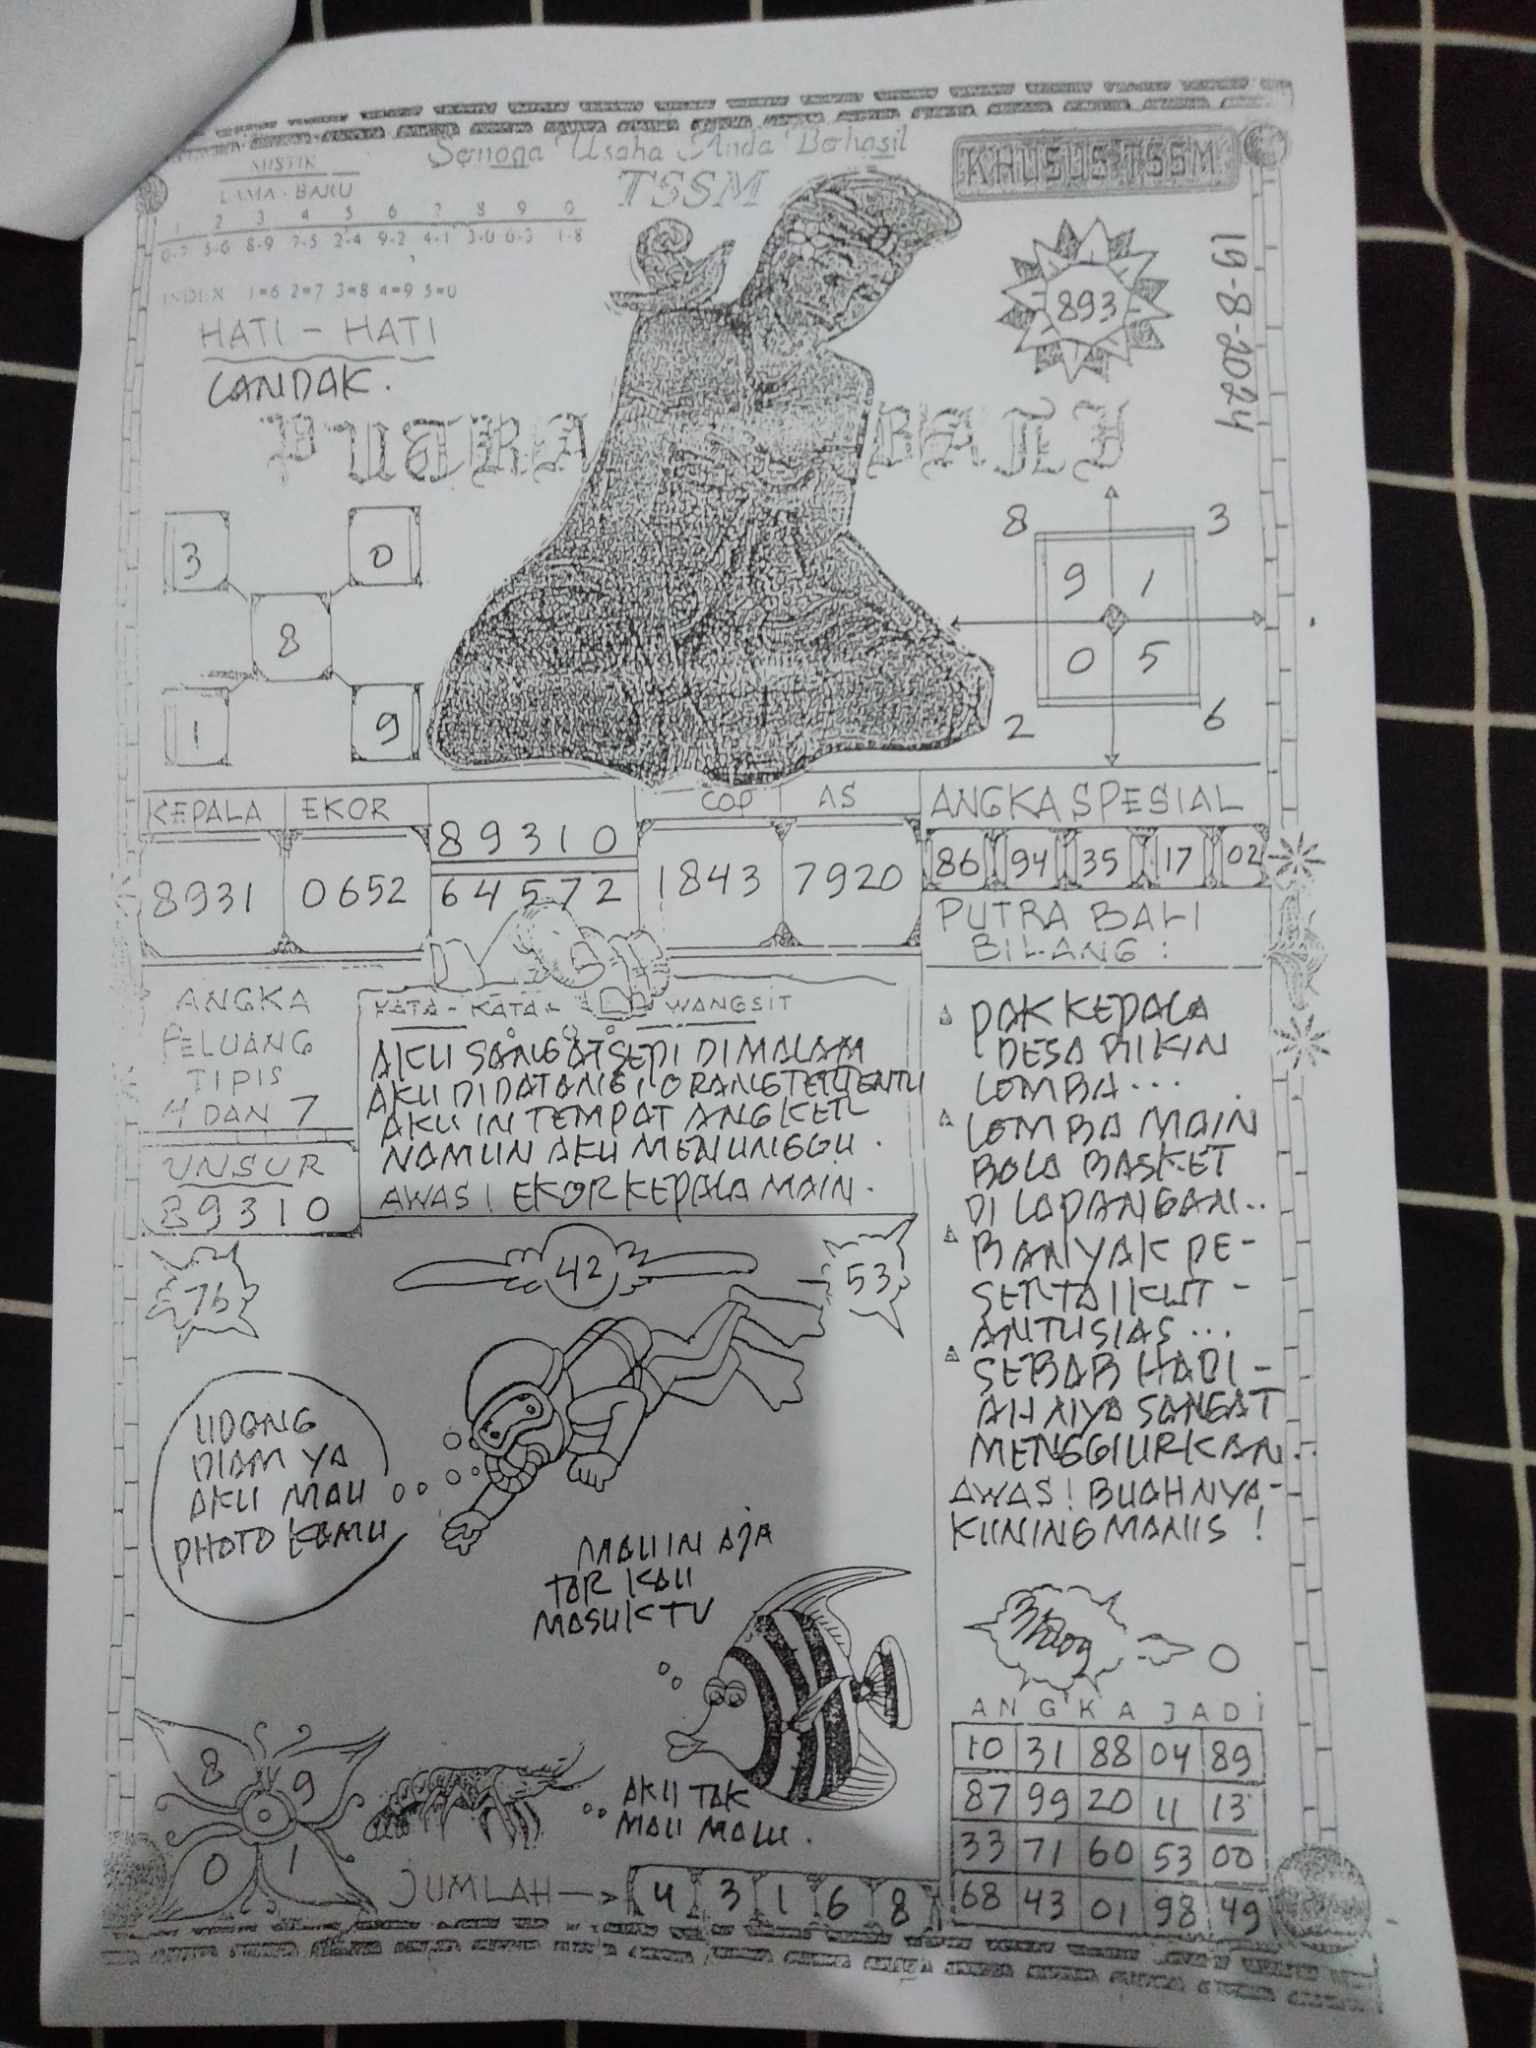 Semoga Usaha Anda Berhasil
TSSM
KHUSUS TSSM
MISTIK
LAMA - BARU
1 2 3 4 5 6 7 8 9 0
0-7 5-6 8-9 7-5 2-4 9-2 4-1 3-0 6-3 1-8
INDEX 1=6 2=7 3=8 4=9 5=0
HATI - HATI
LANDAK.
893
19-8-2024
PUTRA BALI
3 0
8
1 9
8 3
9 1
0 5
2 6
KEPALA EKOR
8931 0652
89310
64572
COP AS
1843 7920
ANGKA SPESIAL
86 94 35 17 02
PUTRA BALI
BILANG :
ANGKA
PELUANG
TIPIS
4 DAN 7
UNSUR
89310
KATA - KATA - WANGSIT
AKU SANGAT SEPI DI MALAM
AKU DI DATANGI ORANG TERTENTU
AKU IN TEMPAT ANGKER
NAMUN AKU MENUNGGU.
AWAS! EKOR KEPALA MAIN.
PAK KEPALA
DESA BIKIN
LOMBA...
LOMBA MAIN
BOLA BASKET
DI LAPANGAN..
BANYAK PE-
SERTA IKUT -
ANTUSIAS...
SEBAB HADI -
AH NYA SANGAT
MENGGIURKAN..
AWAS! BUAHNYA-
KUNING MANIS!
76
42
53
UDANG
DIAM YA
AKU MAU
PHOTO KAMU
MAUIN AJA
TAR KAU
MASUK TV
AKU TAK
MAU MALU.
8 9
0 1
JUMLAH -> 4 3 1 6 8
0
ANGKA JADI
10 31 88 04 89
87 99 20 11 13
33 71 60 53 00
68 43 01 98 49